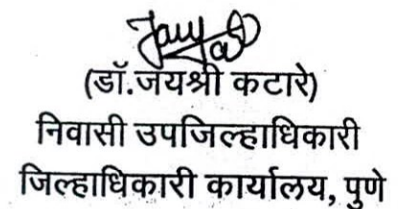 (डॉ.जयश्री कटारे)
निवासी उपजिल्हाधिकारी
जिल्हाधिकारी कार्यालय, पुणे